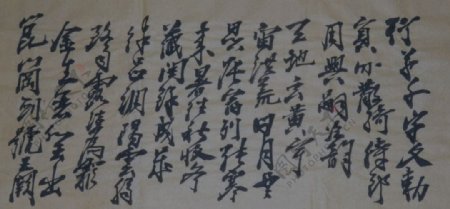 行草千字文勅
員外散騎侍郎
周興嗣次韵
天地玄黄宇
宙洪荒日月盈
昃辰宿列張寒
来暑往秋收冬
藏閏餘成歲
律吕調陽雲騰
致雨露結爲霜
金生麗水玉出
崑岡劍號巨闕